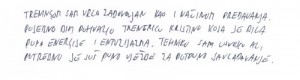 TRENINGOM SAM VRLO ZADOVOLJAN KAO I NAČINOM PREDAVANJA.
POSEBNO BIH POHVALIO TRENERICU KRISTINU KOJA JE BILA
PUNA ENERGIJE I ENTUZIJAZMA. TEHNIKU SAM SHVATIO ALI
POTREBNO JE JOŠ PUNO VJEŽBE ZA POTPUNO SAVLADAVANJE.